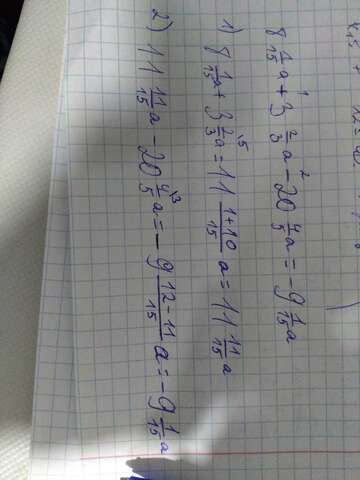 8 1/15 a + 3 2/3 a - 20 4/5 a = -9 1/15 a
1) 8 1/15 a + 3 2/3 a = 11 1+10/15 a = 11 11/15 a
2) 11 11/15 a - 20 4/5 a = -9 12-11/15 a = -9 1/15 a